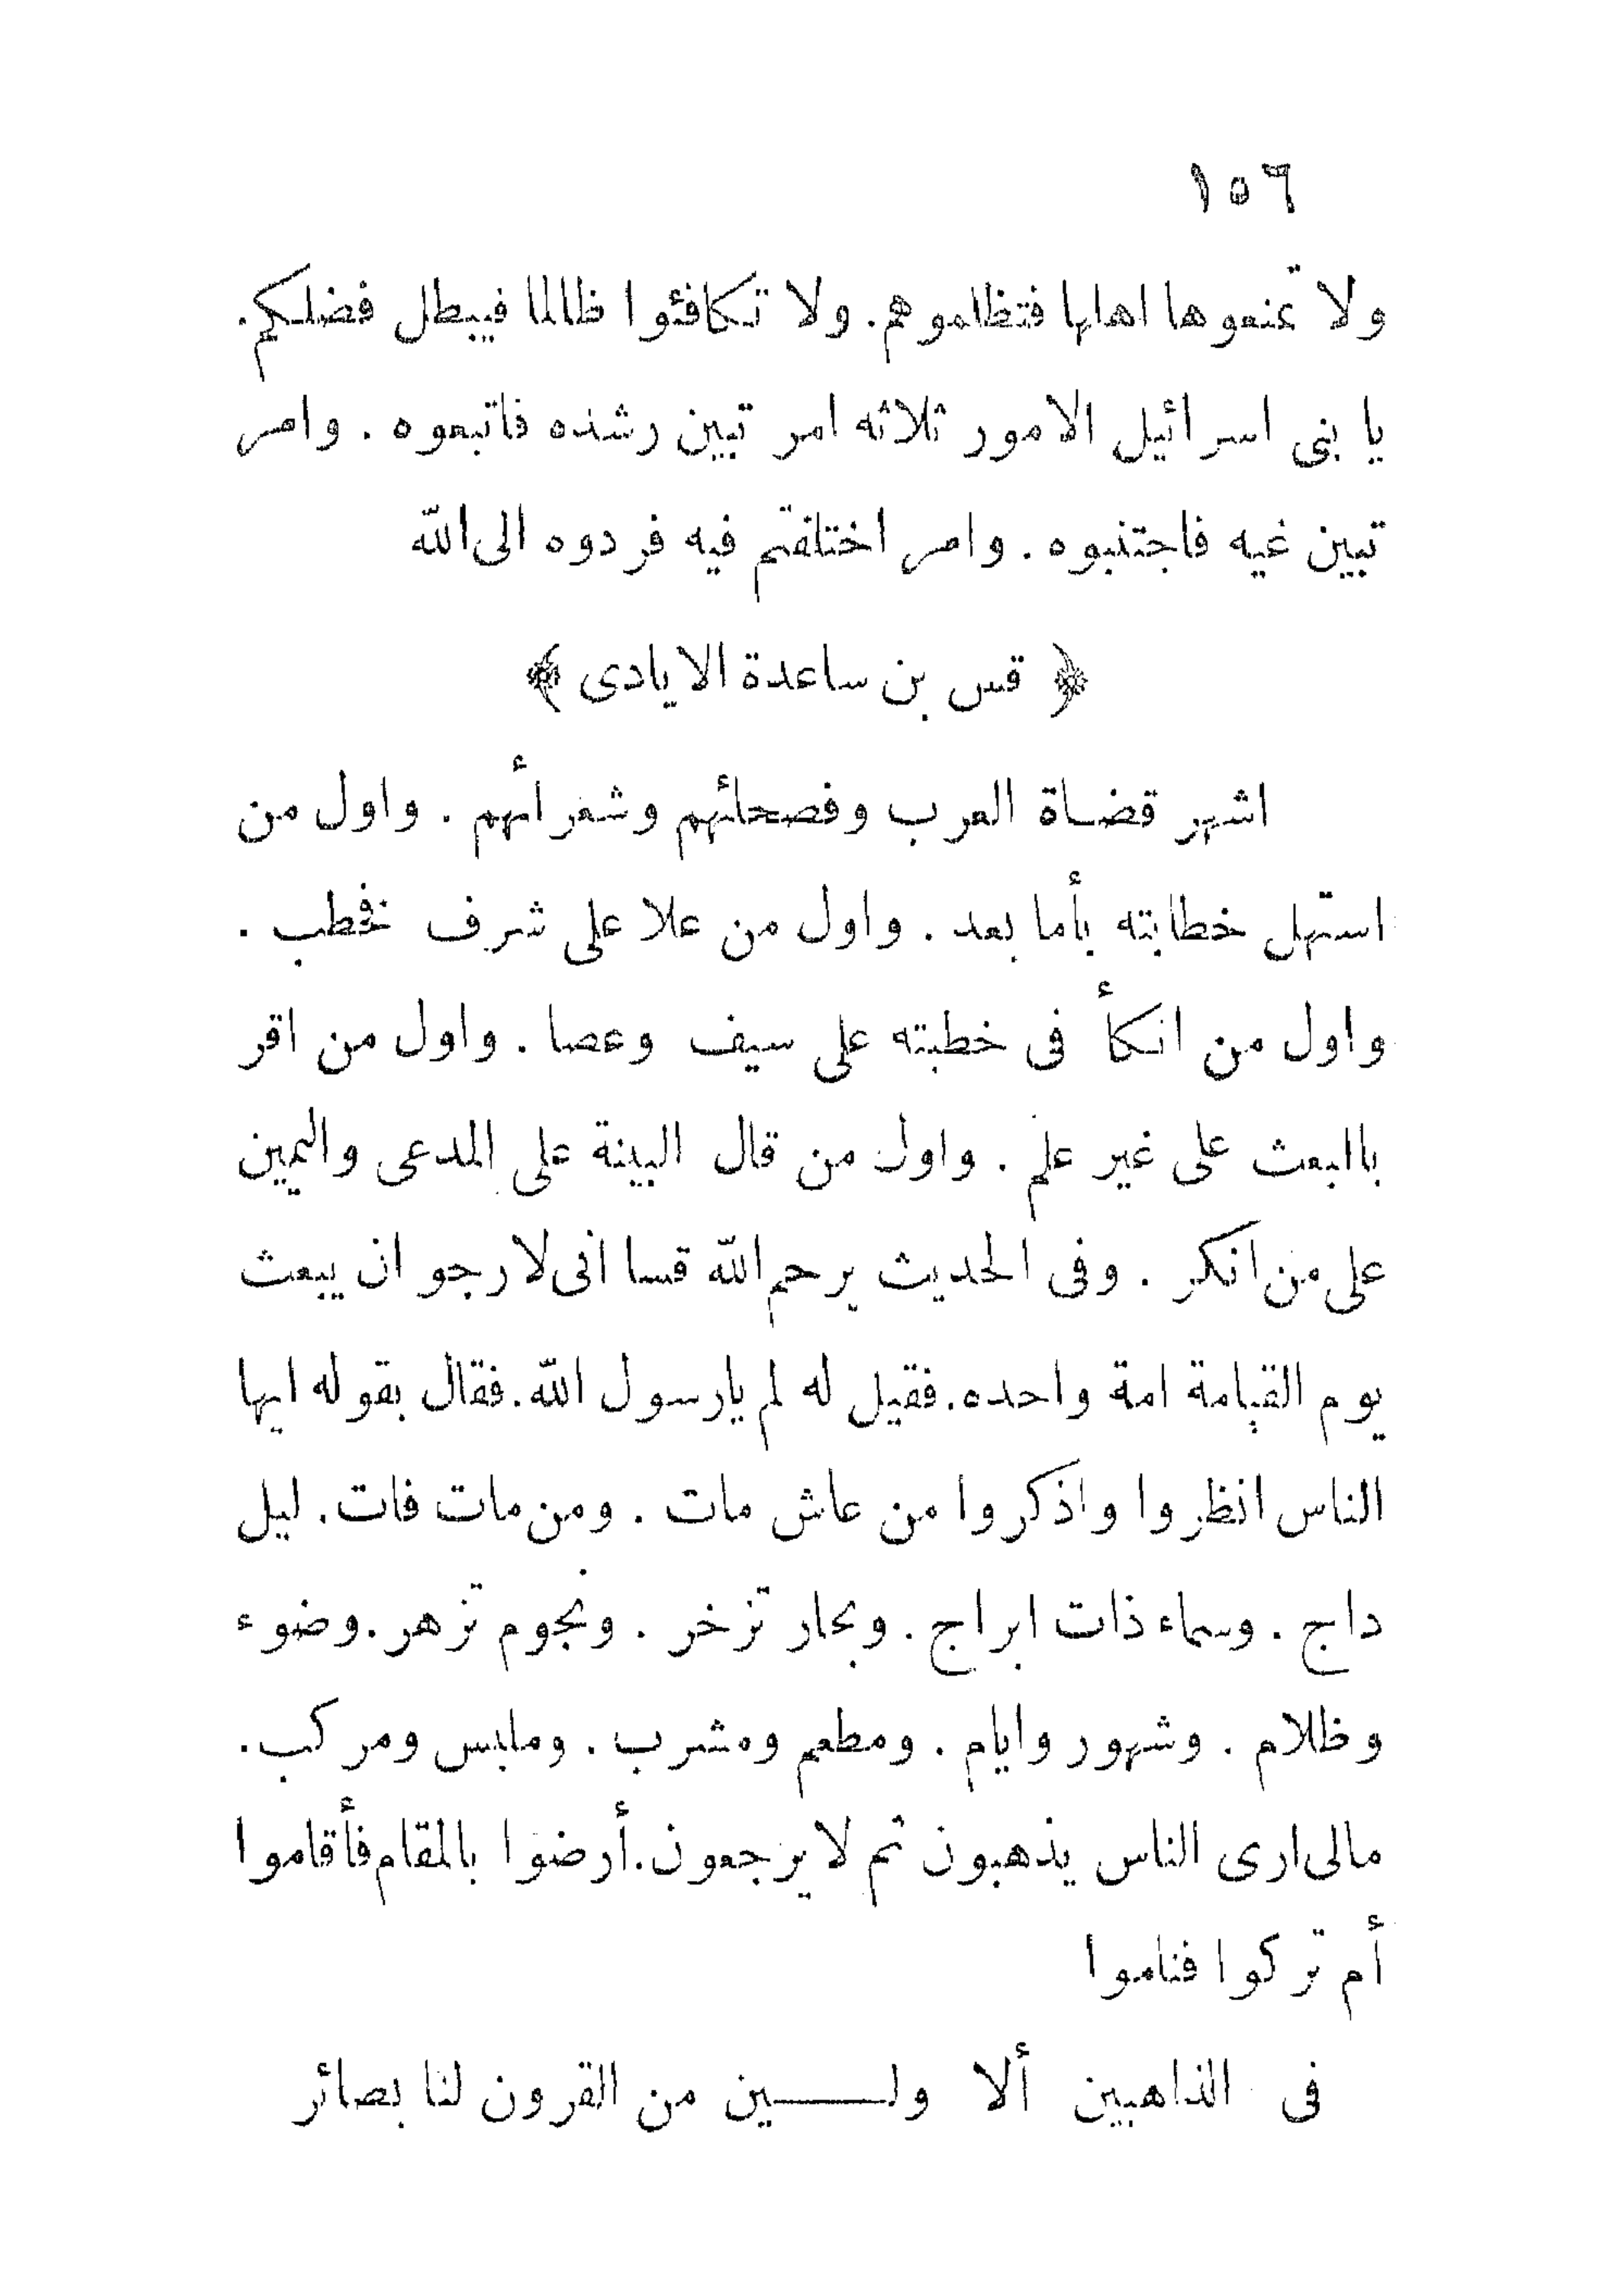 ١٥٦
ولا تمنعوها اهلها فتظلموهم. ولا تكافئوا ظالما فيبطل فضلكم.
يا بنى اسرائيل الامور ثلاثه امر تبين رشده فاتبعوه . وامر
تبين غيه فاجتنبوه . وامر اختلفتم فيه فردوه الى الله
﴿ قس بن ساعدة الايادى ﴾
اشهر قضاة العرب وفصحائهم وشعرأئهم . واول من
استهل خطابته بأما بعد . واول من علا على شرف فخطب .
واول من اتكأ فى خطبته على سيف وعصا . واول من اقر
باالبعث على غير علم . واول من قال البينة على المدعى واليمين
على من انكر . وفى الحديث يرحم الله قسا انى لارجو ان يبعث
يوم القيامة امة واحده. فقيل له لم يارسول الله. فقال بقوله ايها
الناس انظروا واذكروا من عاش مات . ومن مات فات. ليل
داج . وسماء ذات ابراج . وبحار تزخر . ونجوم تزهر. وضوء
وظلام . وشهور وايام . ومطعم ومشرب . وملبس ومركب.
مالى ارى الناس يذهبون ثم لا يرجعون. أرضوا بالمقام فأقاموا
أم تركوا فناموا
فى الذاهبين ألا ولـــين من القرون لنا بصائر